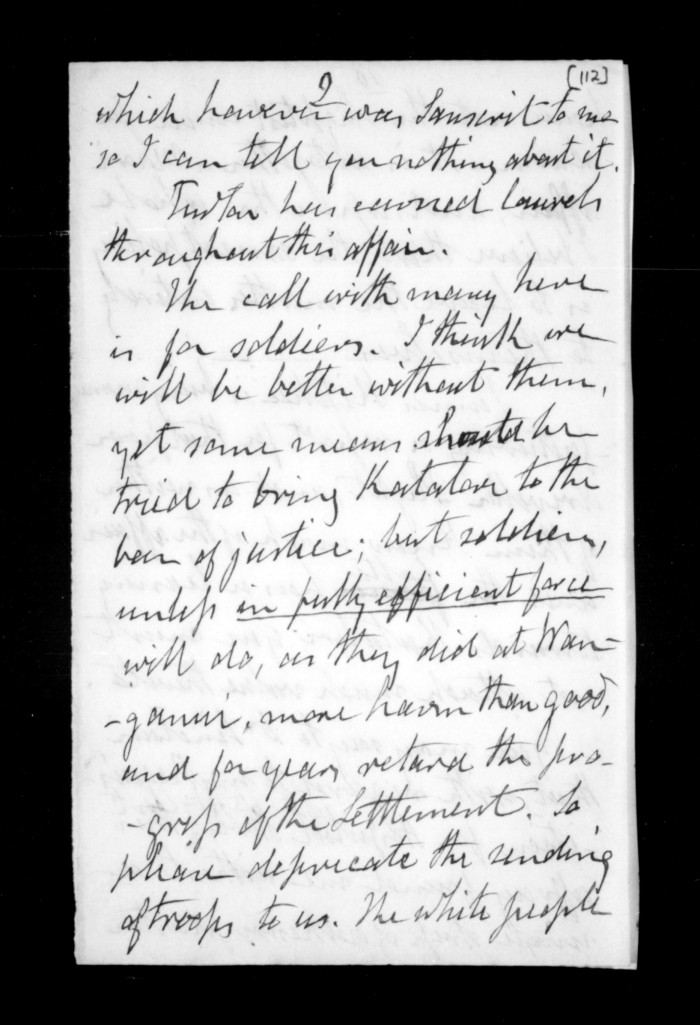 9
[112]
which however was Sanscrit to me
so I can tell you nothing about it.
Turton has earned laurels
throughout this affair.
The call with many here
is for soldiers. I think we
will be better without them,
yet some means should be
tried to bring Katatore to the
bar of justice; but soldiers,
unless in fully efficient force
will do, as they did at Wan-
-ganui, more harm than good,
and for years retard the pro-
-gress of the Settlement. So
please deprecate the sending
of troops to us. The white people